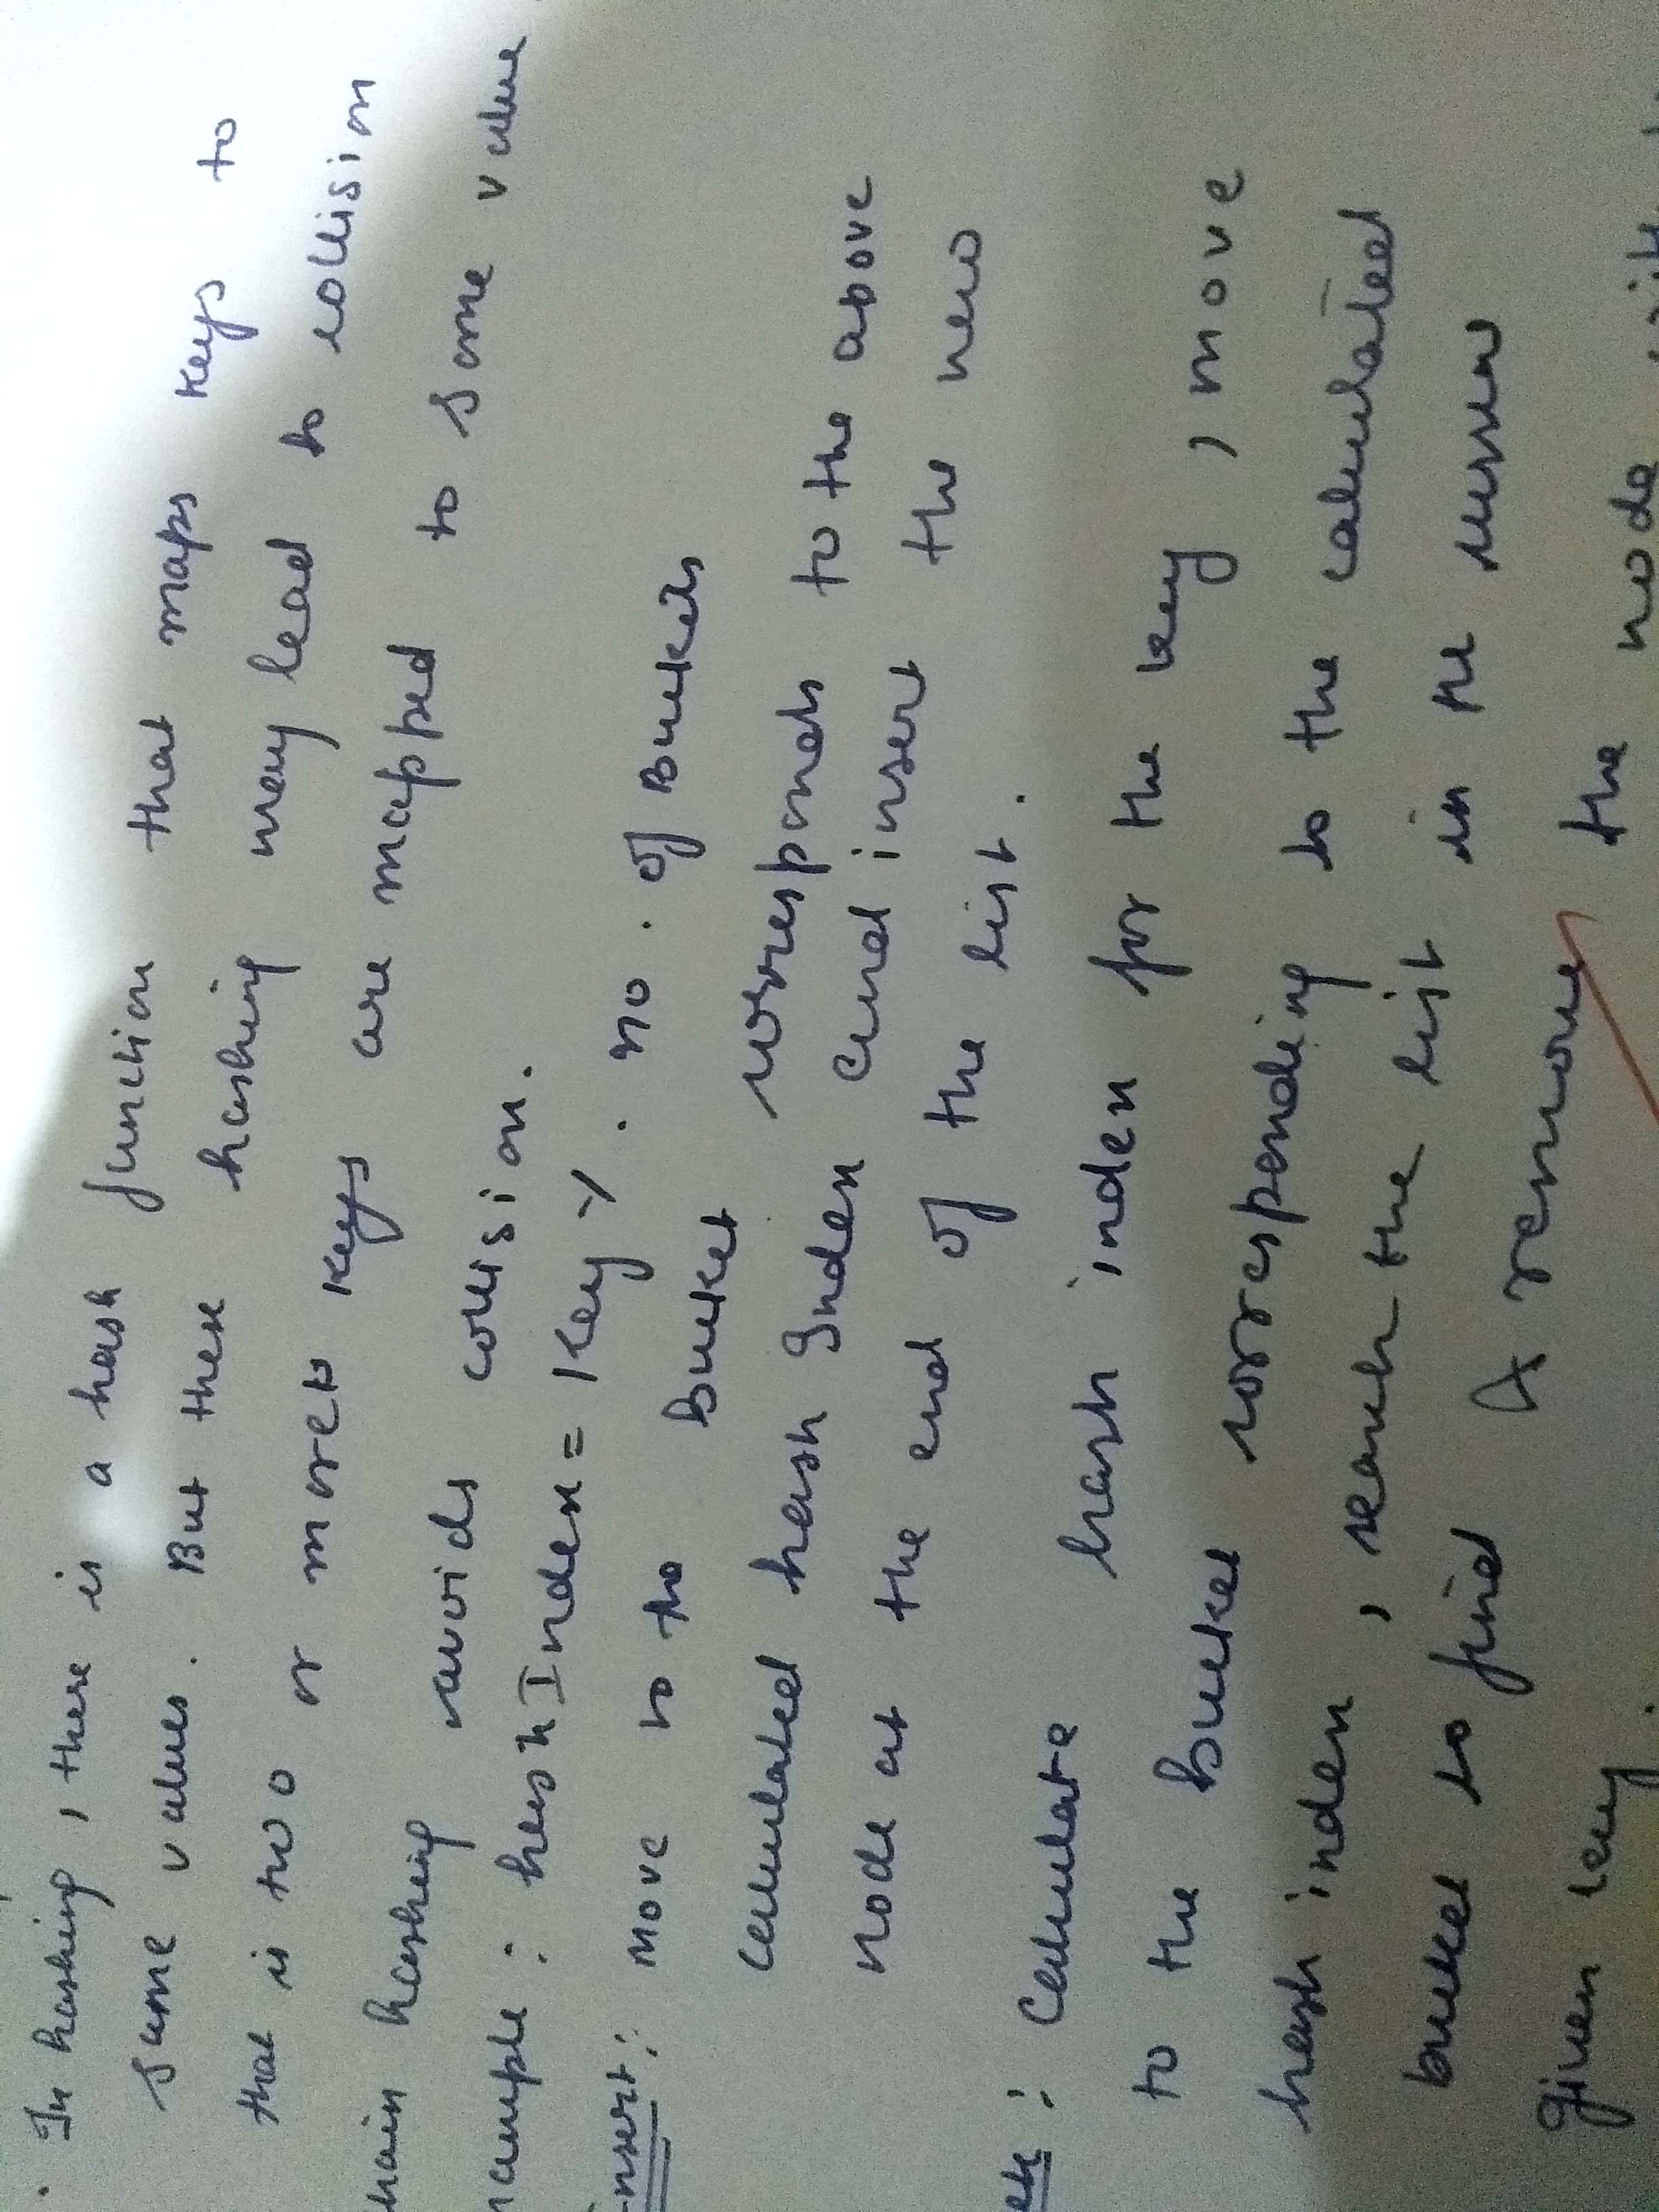 . In hashing, there is a hash function that maps keys to
some values. But these hashing may lead to collision
that is two or more keys are mapped to same value
hashing avoids collision.
: hashIndex = Key % . no . of Buckets
Insert : Move to the Bucket corresponds to the above
calculated hash Index and insert the new
node at the end of the list.
: Calculate hash index for the key, move
to the Bucket corresponding to the calculated
hash index, search the list in the current
bucket to find & remove the node with
given key.